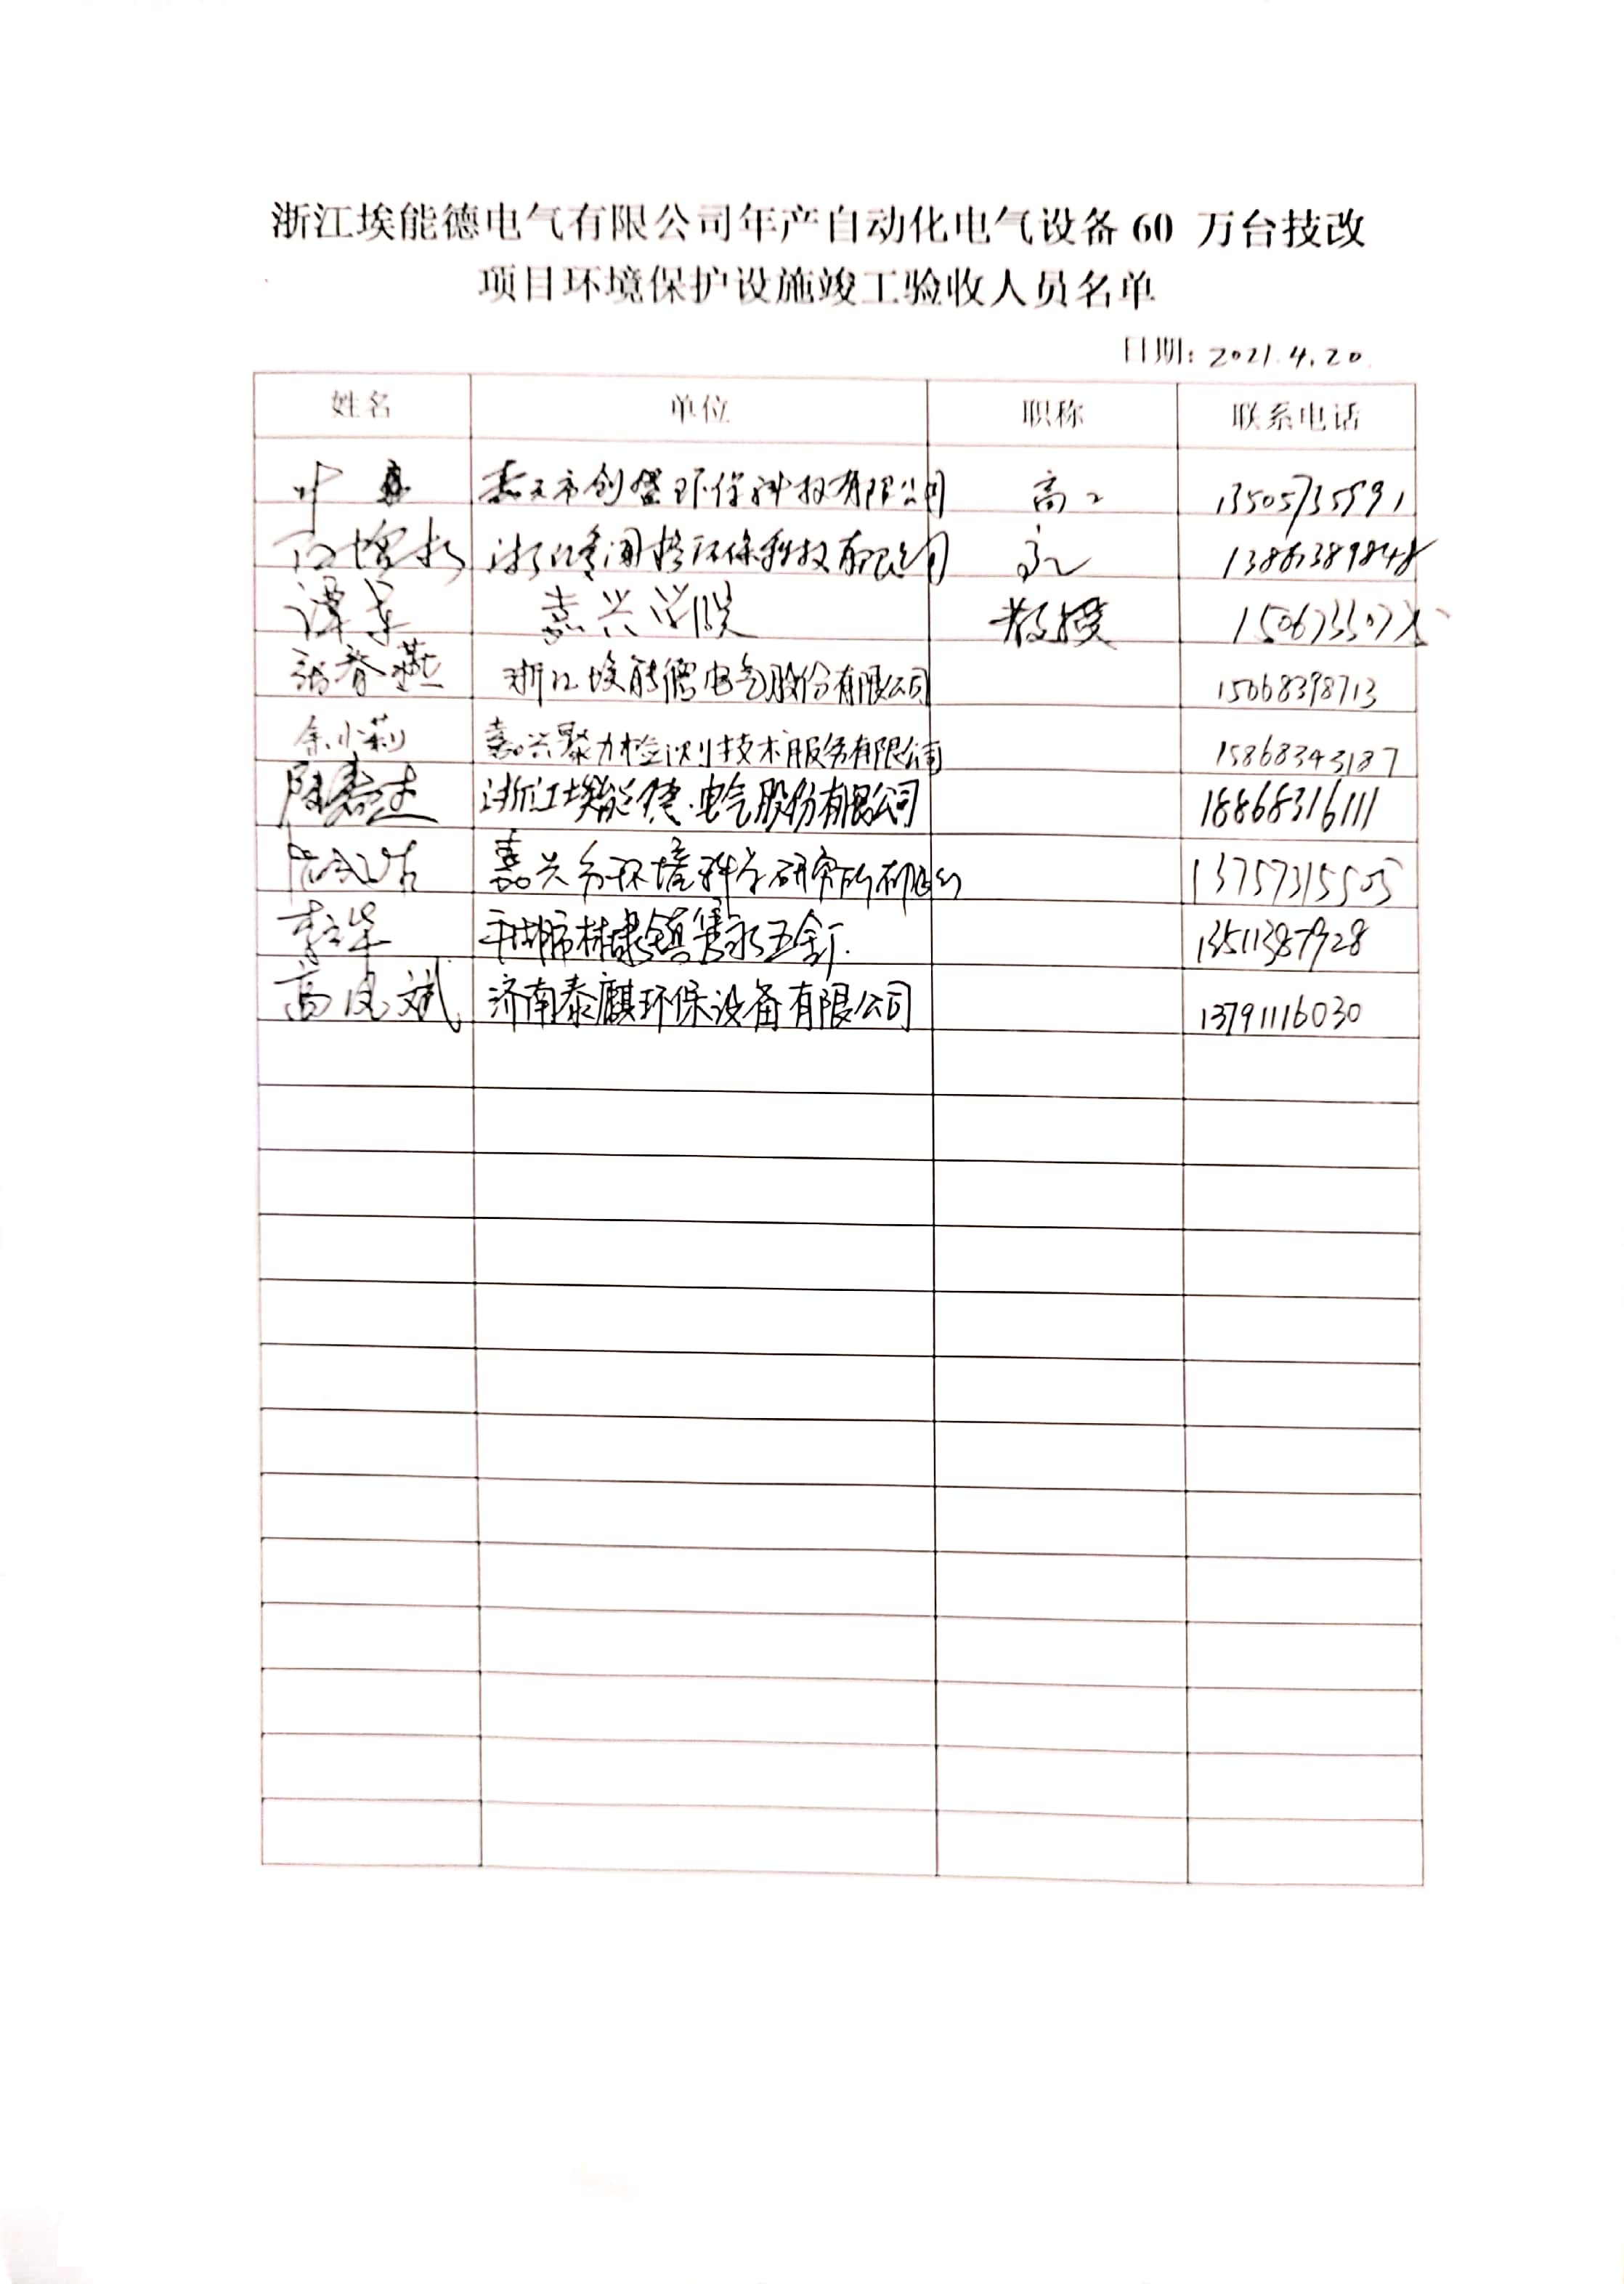 浙江埃能德电气有限公司年产自动化电气设备60 万台技改
项目环境保护设施竣工验收人员名单
日期: 2021.4.20
姓名 单位 职称 联系电话
叶 嘉兴市创盛环保科技有限公司 高工 13505735991
环保科技有限公司 高工
谭 嘉兴学院 教授
张春燕 浙江埃能德电气股份有限公司 15068398713
余小莉 嘉兴聚力检测技术服务有限公司 15868343187
浙江埃能德电气股份有限公司 18868316111
嘉兴市环境科学研究所有限公司 13757315505
平湖市林埭镇隽永五金厂 13511387928
高凤斌 济南泰麒环保设备有限公司 13791116030